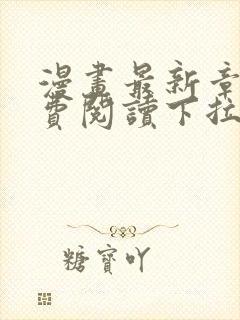 漫畫最新章
費閱讀下拉
糖寶吖